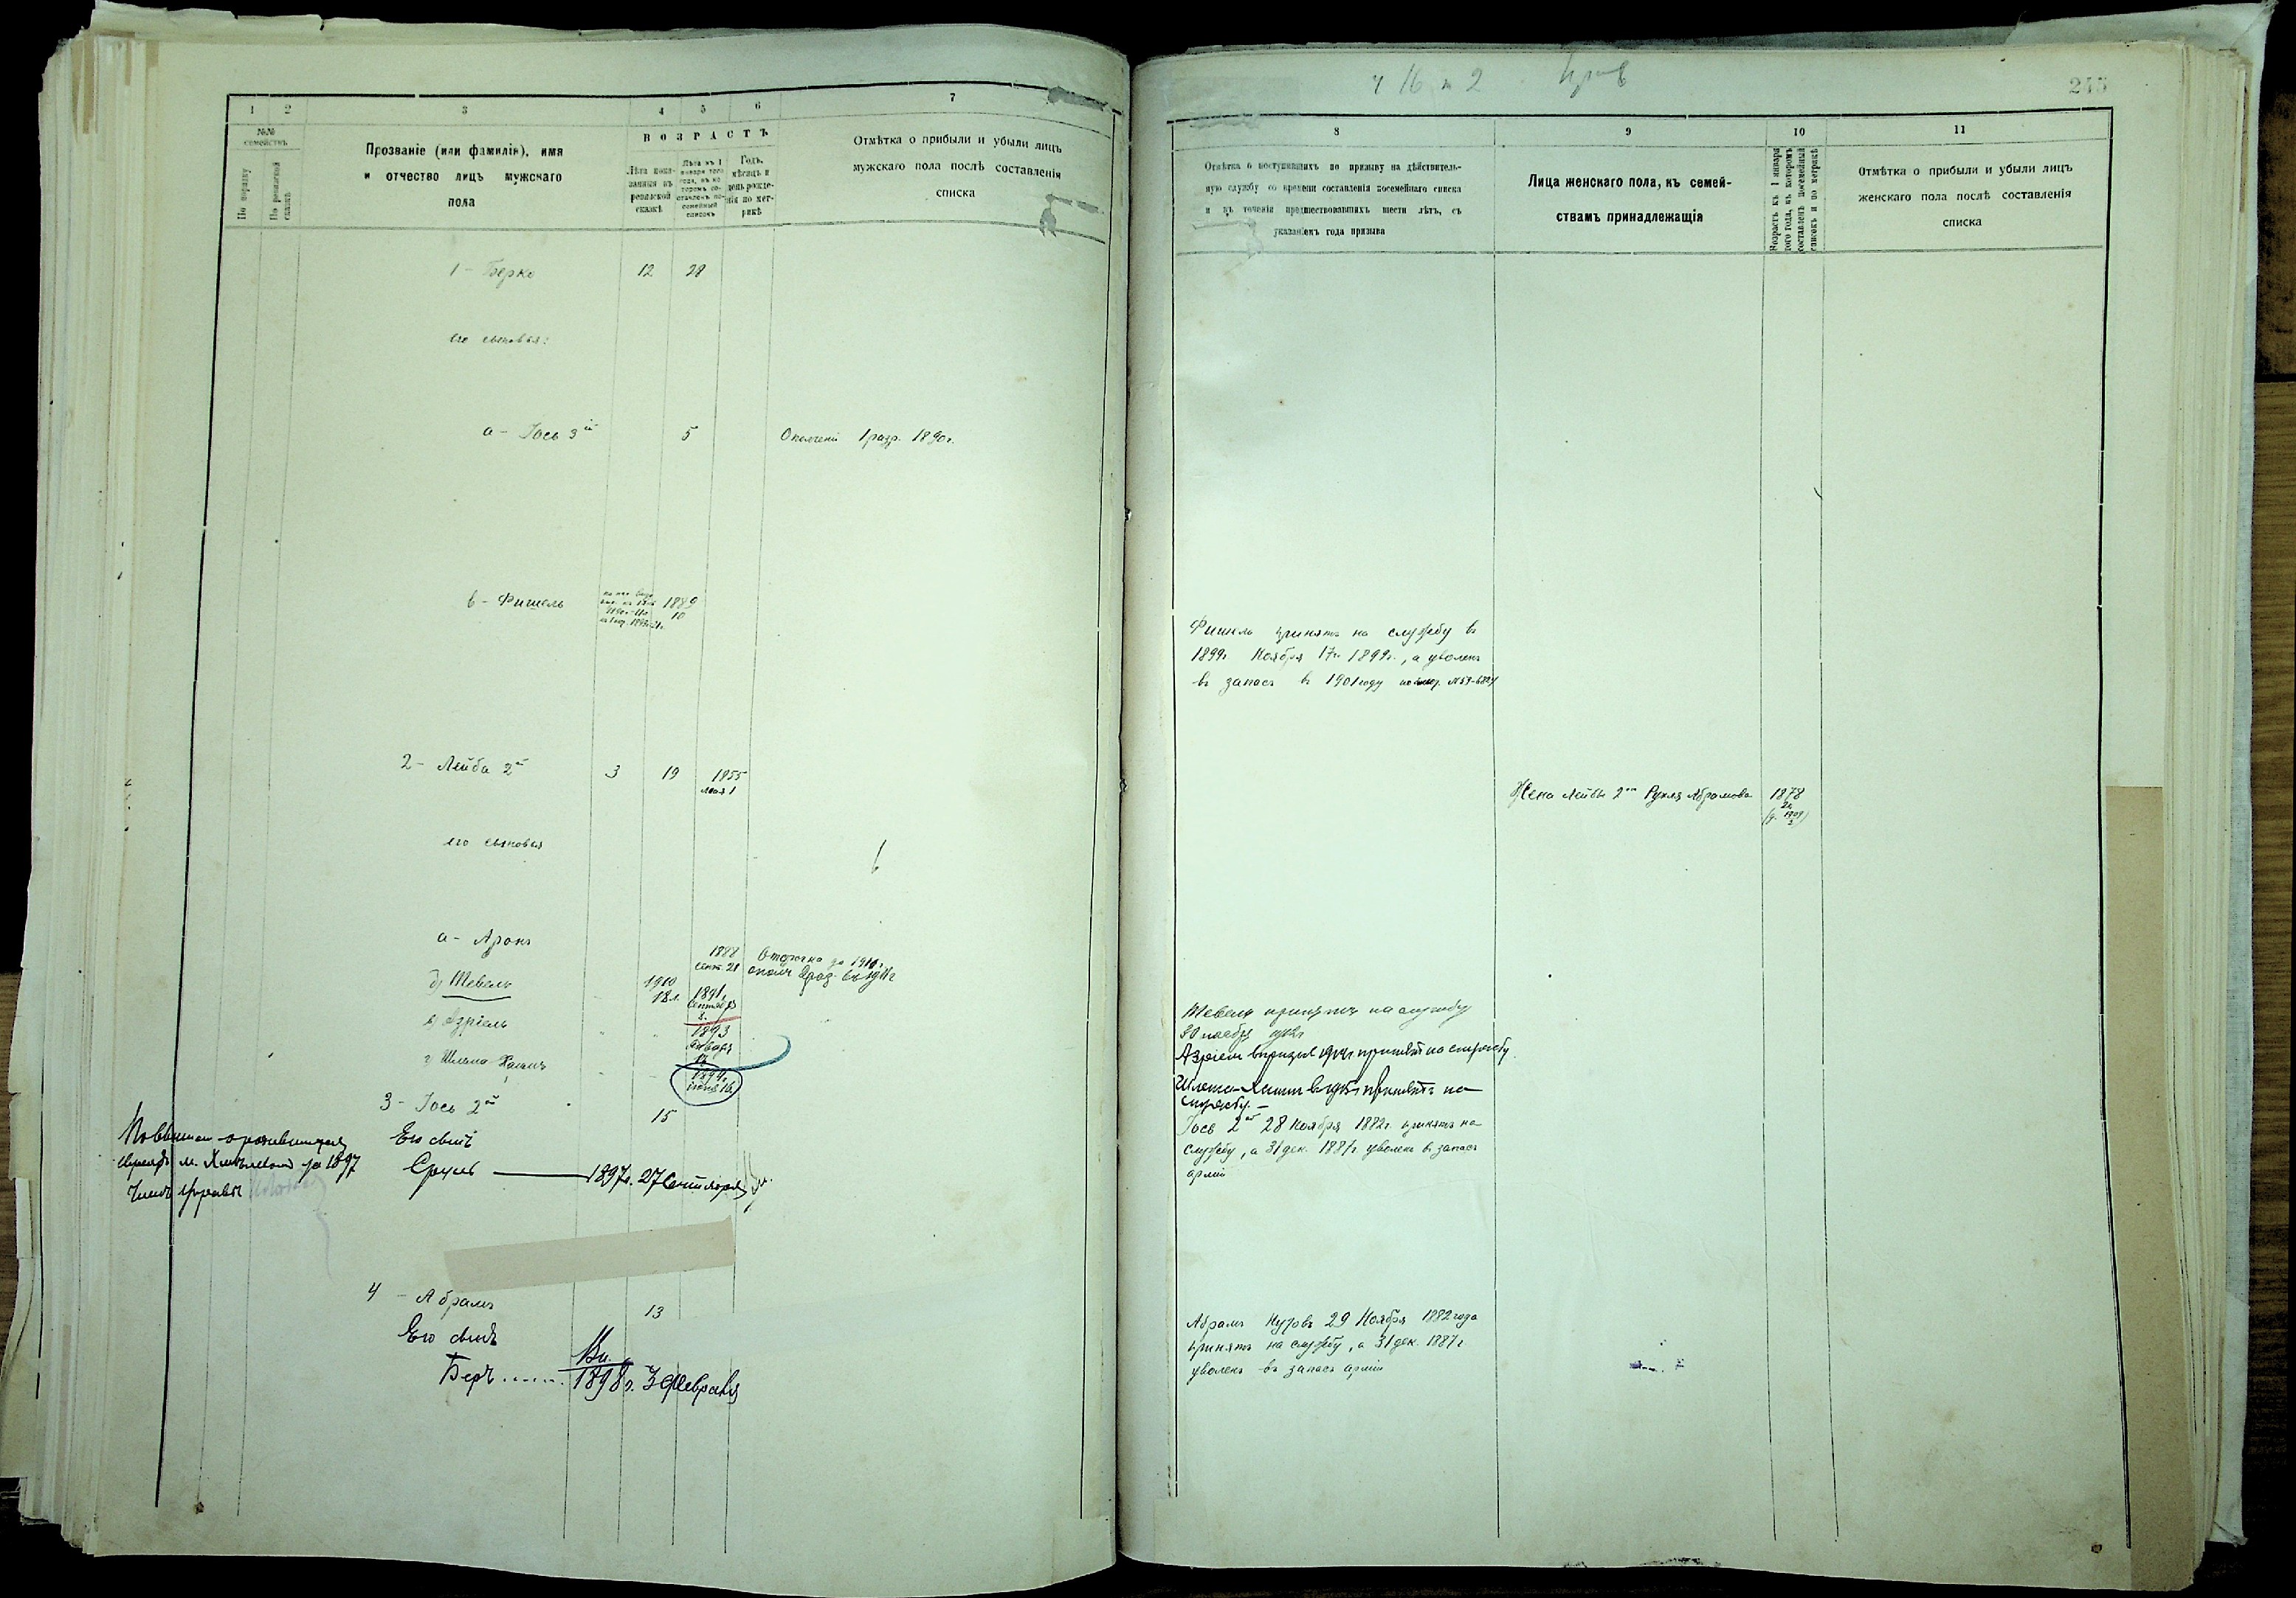 245
1 2 3 4 5 6 7
№№
семействъ
По порядку
По ревизской
сказкѣ
Прозваніе (или фамилія), имя
и отчество лицъ мужскаго
пола
ВОЗРАСТЪ
Лѣта пока-
занныя въ
ревизской
сказкѣ
Лѣта къ 1
января того
года, въ ко
торомъ со-
ставленъ по-
семейный
списокъ
Годъ,
мѣсяцъ и
день рожде-
нія по мет-
рикѣ
Отмѣтка о прибыли и убыли лицъ
мужскаго пола послѣ составленія
списка
1 - Берко 12 28
его сыновья:
а - Іось 3й 5 Ополченіи 1 разр. 1890г.
в - Фишель 1889
10
2 - Лейба 2й 3 19 1855
мая 1
его сыновья
а - Аронъ 1888
сент. 21
Отсрочка до 1910г.
Шевель 1910
18 л. 1891
сентября
в) Азріель 1893
января
г Шлема-Хаимъ 1894
3 - Іось 2й 15
Его сынъ
Сруль 1897г. 27 Сентября
за 1897
4 - Абрамъ 13
Его сынъ
Беръ 1898г. 3 Февраля
8 9 10 11
Отмѣтка о поступившихъ по призыву на дѣйствитель-
ную службу со времени составленія посемейнаго списка
и въ теченіи предшествовавшихъ шести лѣтъ, съ
указаніемъ года призыва
Лица женскаго пола, къ семей-
ствамъ принадлежащія
Возрастъ къ 1 января
того года, въ которомъ
составленъ посемейный
списокъ и по метрикѣ
Отмѣтка о прибыли и убыли лицъ
женскаго пола послѣ составленія
списка
Фишель принятъ на службу въ
1899г. Ноября 17г. 1899г., а уволенъ
въ запасъ въ 1901 году
Жена Лейбы 2го Рухля Абрамова 1878
Шевель принятъ на службу
Азріель въ призывъ 1914г. принятъ на службу.
Шлема-Хаимъ въ 1915г принятъ на
службу. -
Іось 2й 28 Ноября 1882г. принятъ на
службу, а 31 дек. 1887г. уволенъ въ запасъ
арміи
Абрамъ 29 Ноября 1882 года
принятъ на службу, а 31 дек. 1887г
уволенъ въ запасъ арміи